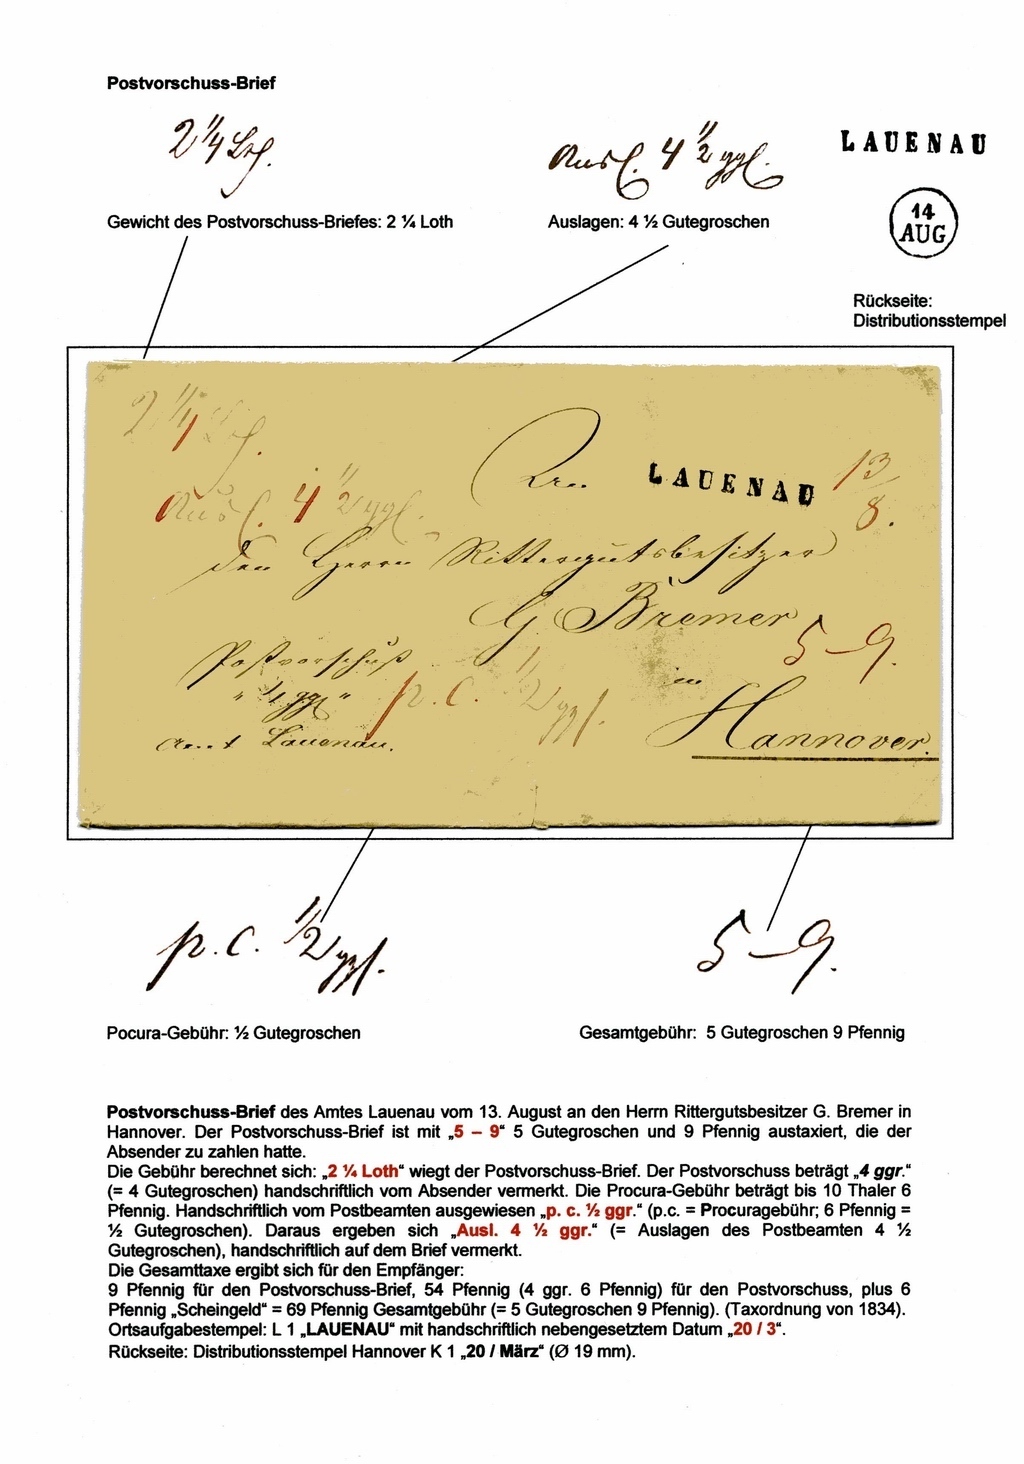 Postvorschuss-Brief
2 1/4 Lth.
Ausl. 4 1/2 ggl.
LAUENAU
Gewicht des Postvorschuss-Briefes: 2 ¼ Loth
Auslagen: 4 ½ Gutegroschen
14
AUG
Rückseite:
Distributionsstempel
2 1/4 Lth.
Ausl. 4 1/2 ggl.
An
LAUENAU
13/8.
den Herrn Rittergutsbesitzer
G. Bremer
5–9.
Postvorschuß
" 4 ggl "
p. c. 1/2 ggl.
in
Amt Lauenau.
Hannover.
p. c. 1/2 ggl.
5–9.
Pocura-Gebühr: ½ Gutegroschen
Gesamtgebühr: 5 Gutegroschen 9 Pfennig
Postvorschuss-Brief des Amtes Lauenau vom 13. August an den Herrn Rittergutsbesitzer G. Bremer in
Hannover. Der Postvorschuss-Brief ist mit „5 – 9“ 5 Gutegroschen und 9 Pfennig austaxiert, die der
Absender zu zahlen hatte.
Die Gebühr berechnet sich: „2 ¼ Loth“ wiegt der Postvorschuss-Brief. Der Postvorschuss beträgt „4 ggr.“
(= 4 Gutegroschen) handschriftlich vom Absender vermerkt. Die Procura-Gebühr beträgt bis 10 Thaler 6
Pfennig. Handschriftlich vom Postbeamten ausgewiesen „p. c. ½ ggr.“ (p.c. = Procuragebühr; 6 Pfennig =
½ Gutegroschen). Daraus ergeben sich „Ausl. 4 ½ ggr.“ (= Auslagen des Postbeamten 4 ½
Gutegroschen), handschriftlich auf dem Brief vermerkt.
Die Gesamttaxe ergibt sich für den Empfänger:
9 Pfennig für den Postvorschuss-Brief, 54 Pfennig (4 ggr. 6 Pfennig) für den Postvorschuss, plus 6
Pfennig „Scheingeld“ = 69 Pfennig Gesamtgebühr (= 5 Gutegroschen 9 Pfennig). (Taxordnung von 1834).
Ortsaufgabestempel: L 1 „LAUENAU“ mit handschriftlich nebengesetztem Datum „20 / 3“.
Rückseite: Distributionsstempel Hannover K 1 „20 / März“ (Ø 19 mm).